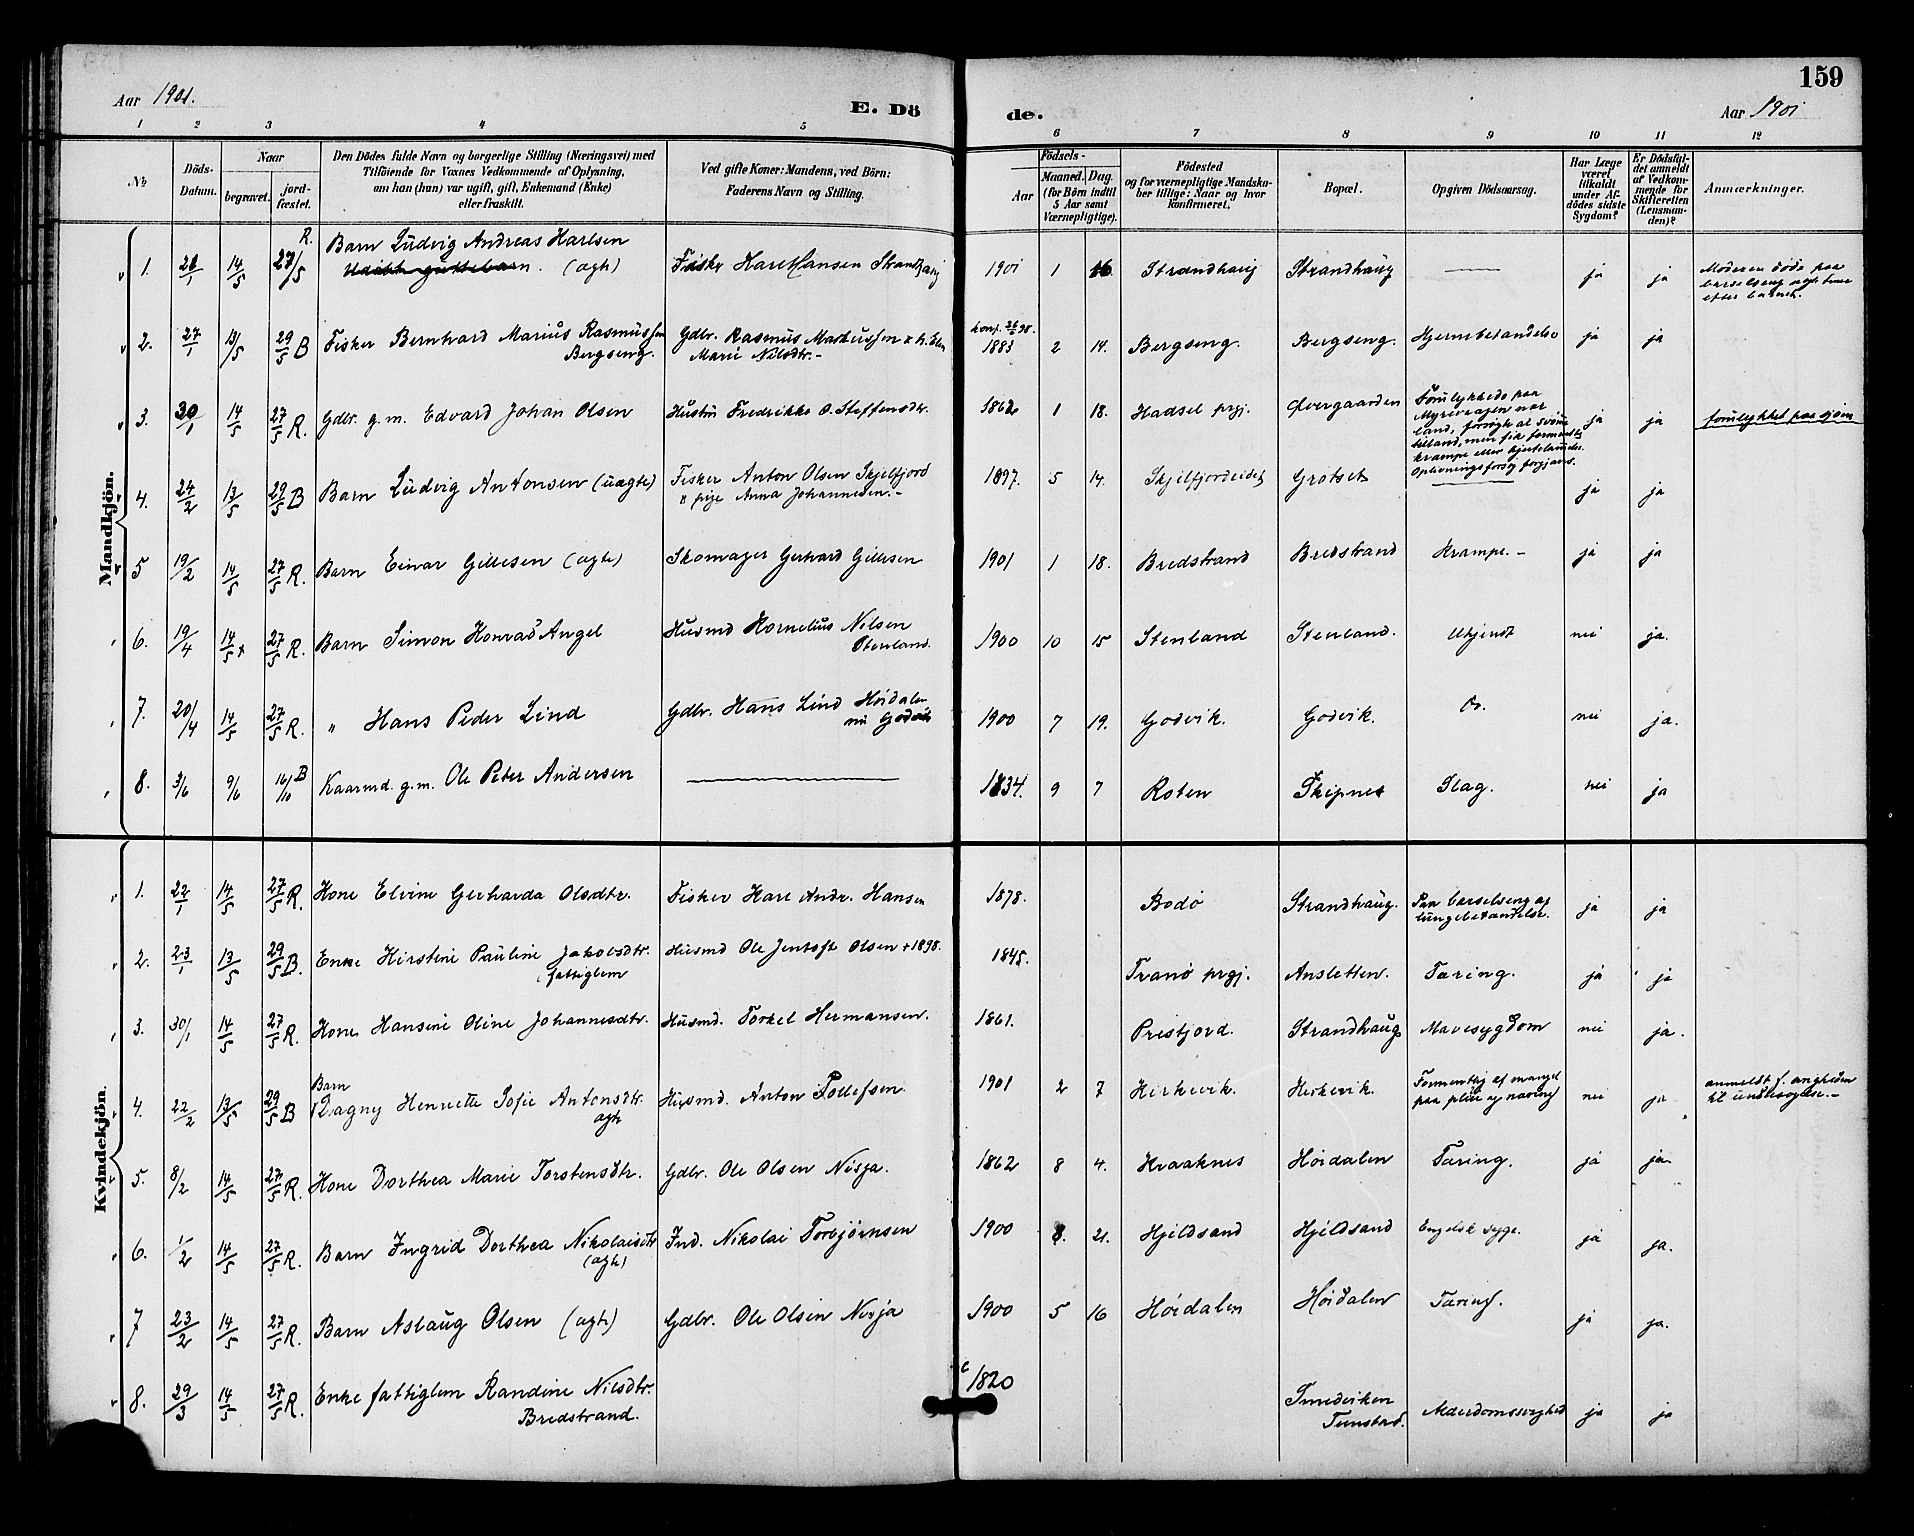 159
Aar 1901.
E. Döde.
Aar 1901
1 2 3 4 5 6 7 8 9 10 11 12
No.
Döds-Datum.
Naar
begravet.
jord-fæstet.
Den Dödes fulde Navn og borgerlige Stilling (Næringsvei) med
Tilföiende for Voxnes Vedkommende af Oplysning,
om han (hun) var ugift, gift, Enkemand (Enke)
eller fraskilt.
Ved gifte Koner: Mandens, ved Börn:
Faderens Navn og Stilling.
Födsels-
Aar
Maaned. Dag.
(for Börn indtil
5 Aar samt
Værnepligtige).
Födested
og for værnepligtige Mandska-
ber tillige: Naar og hvor
konfirmeret.
Bopæl.
Opgiven Dödsaarsag.
Har Læge
været
tilkaldt
under Af-
dödes sidste
Sygdom?
Er Dödsfal-
det anmeldt
af Vedkom-
mende for
Skifteretten
(Lensman-
den)?
Anmærkninger.
Mandkjön.
1. 21/1 14/5 27/5 R. Barn Ludvig Andreas Karlsen (ægte) Fisker Karl Hansen Strandhaug 1901 1 16 Strandhaug Strandhaug — ja ja Moderen døde paa
barselseng efter barnet.
2. 27/1 13/5 29/5 B Fisker Bernhard Marius Rasmussen
Bergseng. Gdbr. Rasmus Markussen & h. Elen
Marie Nilsdtr.- konf. 26/6 98.
1883 2 14. Bergseng. Bergseng. Hjernebetændelse ja ja
3. 30/1 14/5 27/5 R. Gdbr. g.m. Edvard Johan Olsen Hustru Fredrikke O. Steffensdr. 1862 1 18. Hadsel prgj. Øvergaarden Forulykkede paa
land, forsøgte at svømme
tilland, men fik formentlig
krampe eller hjertelammelse.
Oplivningsforsøg forgjæves. ja ja forulykket paa sjøen
4. 24/2 13/5 29/5 B Barn Ludvig Antonsen (uægte) Fisker Anton Olsen Skjelfjord
" pige Anna Johannesen.- 1897. 5 14. Skjelfjordeidet Grotset — ja ja
5 19/2 14/5 27/5 R. Barn Einar Gillesen (ægte) Skomager Gerhard Gillesen 1901 1 18. Bredstrand Bredstrand Krampe.- ja ja
6. 19/4 14/5 x 27/5 R. Barn Simon Konrad Angel Husmd Kornelius Nilsen
Stenland. 1900 10 15 Stenland Stenland. Ukjendt nei ja.
7. 20/4 14/5 27/5 R. " Hans Peder Lind Gdbr. Hans Lind Høidalen
nu Godvik 1900 7 19. Godvik. Godvik. Do. nei ja.
8. 3/6 9/6 16/10 B Kaarmd. g.m. Ole Peter Andersen — 1834. 9 7 Roten Skipnes Slag. nei ja
Kvindekjön.
1. 22/1 14/5 27/5 R. Kone Elvine Gerharda Olsdtr. Fisker Karl Andr. Hansen 1878. Bodø Strandhaug. Paa barselseng af
lungebetændelse. ja ja
2. 23/1 13/5 29/5 B. Enke Kirstine Pauline Jakobsdtr.
(fattiglem Husmd Ole Jentoft Olsen +1898. 1845. Tranø prgj. Ansletten. Tæring. ja ja
3. 30/1 14/5 27/5 R. Kone Hansine Oline Johannesdtr. Husmd. Torkel Hermansen. 1861. Prestjord. Strandhaug Mavesygdom nei ja.
4. 22/2 13/5 29/5 B Barn
Dagny Henriette Sofie Antonsdtr.
ægte Husmd. Anton Tollefsen. 1901 2 7 Kirkevik. Kirkevik. Formentlig af mangel
paa pleie og næring nei ja anmeldt f.
til undersøgelse.-
5. 8/2 14/5 27/5 R. Kone Dorthea Marie Torstensdtr. Gdbr. Ole Olsen Nisja. 1862 8 4. Kraaknes Høidalen Tæring. ja ja
6. 1/2 14/5 27/5 R. Barn Ingrid Dorthea Nikolaisdtr
(ægte) Ind. Nikolai Torbjørnsen 1900 8. 21. Hjeldsand Hjeldsand Engelsk syge. ja ja.
7 23/2 14/5 27/5 R. Barn Aslaug Olsen (ægte) Gdbr. Ole Olsen Nisja 1900 5 16 Høidalen Høidalen Tæring. ja ja.
8. 29/3 14/5 27/5 R. Enke fattiglem Randine Nilsdtr.
Bredstrand. c 1820 Smedviken
Tunstad. Alderdomssvaghed ja ja